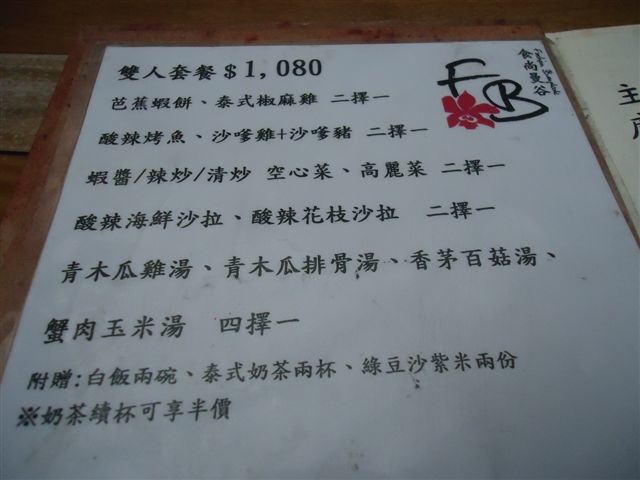 雙人套餐$1,080
芭蕉蝦餅、泰式椒麻雞 二擇一
酸辣烤魚、沙嗲雞+沙嗲豬 二擇一
蝦醬/辣炒/清炒 空心菜、高麗菜 二擇一
酸辣海鮮沙拉、酸辣花枝沙拉 二擇一
青木瓜雞湯、青木瓜排骨湯、香茅百菇湯、
蟹肉玉米湯 四擇一
附贈:白飯兩碗、泰式奶茶兩杯、綠豆沙紫米兩份
※奶茶續杯可享半價
FB
食尚曼谷
主